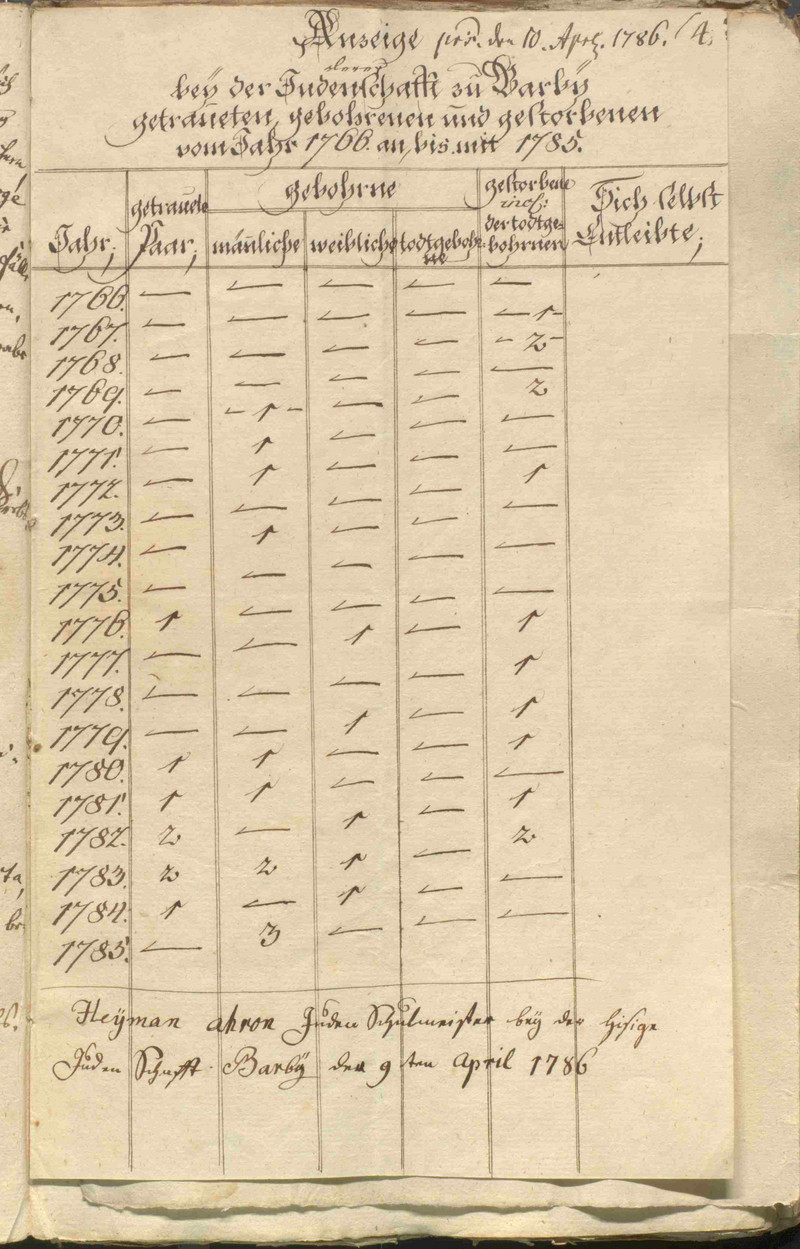 Anzeige prs. den 10. Apr. 1786. (4.
derer
bey der Judenschafft zu Barby
getraueten, gebohrenen und gestorbenen
vom Jahr 1766. an, bis mit 1785.
Jahr; getraute Paar; gebohrne gestorbene incl: der todtgebohrnen Sich selbst Entleibte;
männliche weibliche todtgebohrne
1766. — — — — —
1767. — — — — — 1 -
1768. — — — — - 2 -
1769. — — — — —
1770. — - 1 - — — 2
1771. — 1 — — —
1772. — 1 — — —
1773. — — — — 1
1774. — 1 — — —
1775. — — — — —
1776. 1 — — — —
1777. — — 1 — 1
1778. — — — — 1
1779. — — 1 — 1
1780. 1 1 — — 1
1781. 1 1 — — —
1782. 2 — 1 — 1
1783. 2 2 1 — 2
1784. 1 — 1 — —
1785. — 3 — — —
Heÿman ahron Juden Schulmeister beÿ der hisige
Juden Schafft Barbÿ den 9ten april 1786